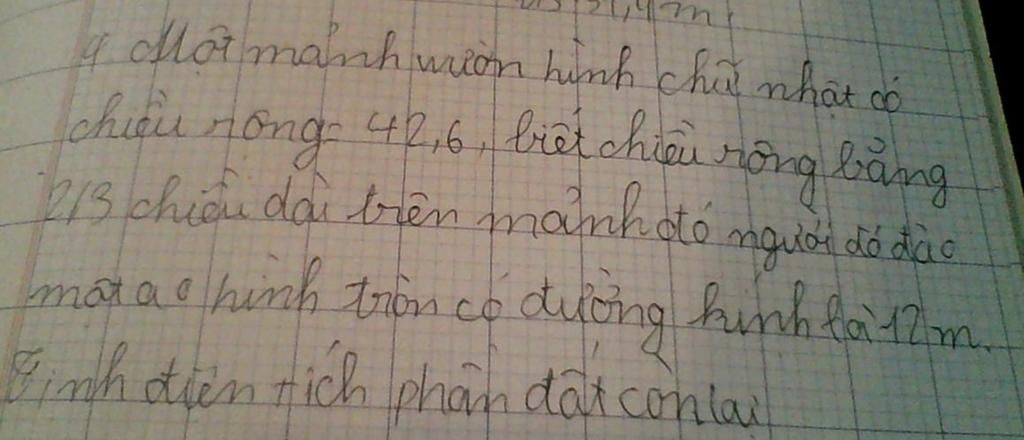 31,4 m
4 Một mảnh vườn hình chữ nhật có
chiều rộng = 42,6, biết chiều rộng bằng
2/3 chiều dài trên mảnh đó người đó đào
một ao hình tròn có đường kính là 12 m.
Tính diện tích phần đất còn lại